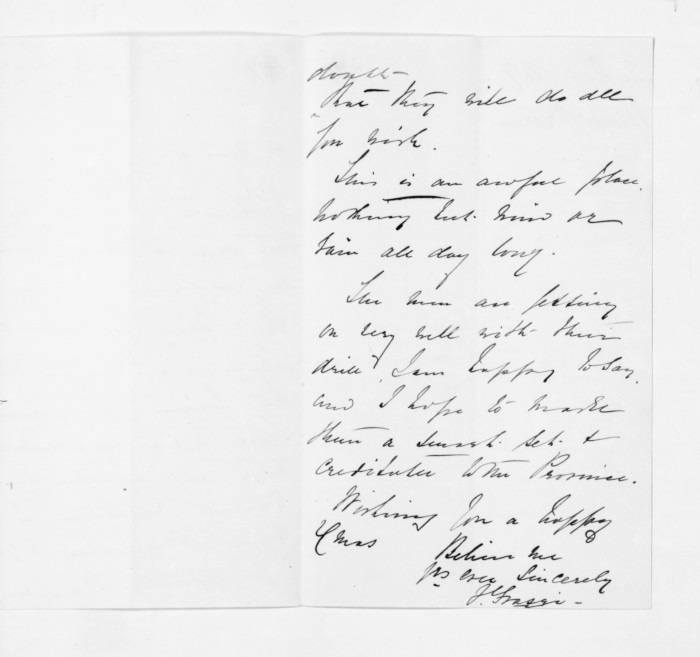 doubt
But they will do all
you wish.
This is an awful place.
nothing but wind or
rain all day long.
The men are getting
on very well with their
drill, I am happy to say,
and I hope to make
them a smart set &
creditable to the Province.
Wishing you a happy
Xmas
Believe me
yrs ever sincerely